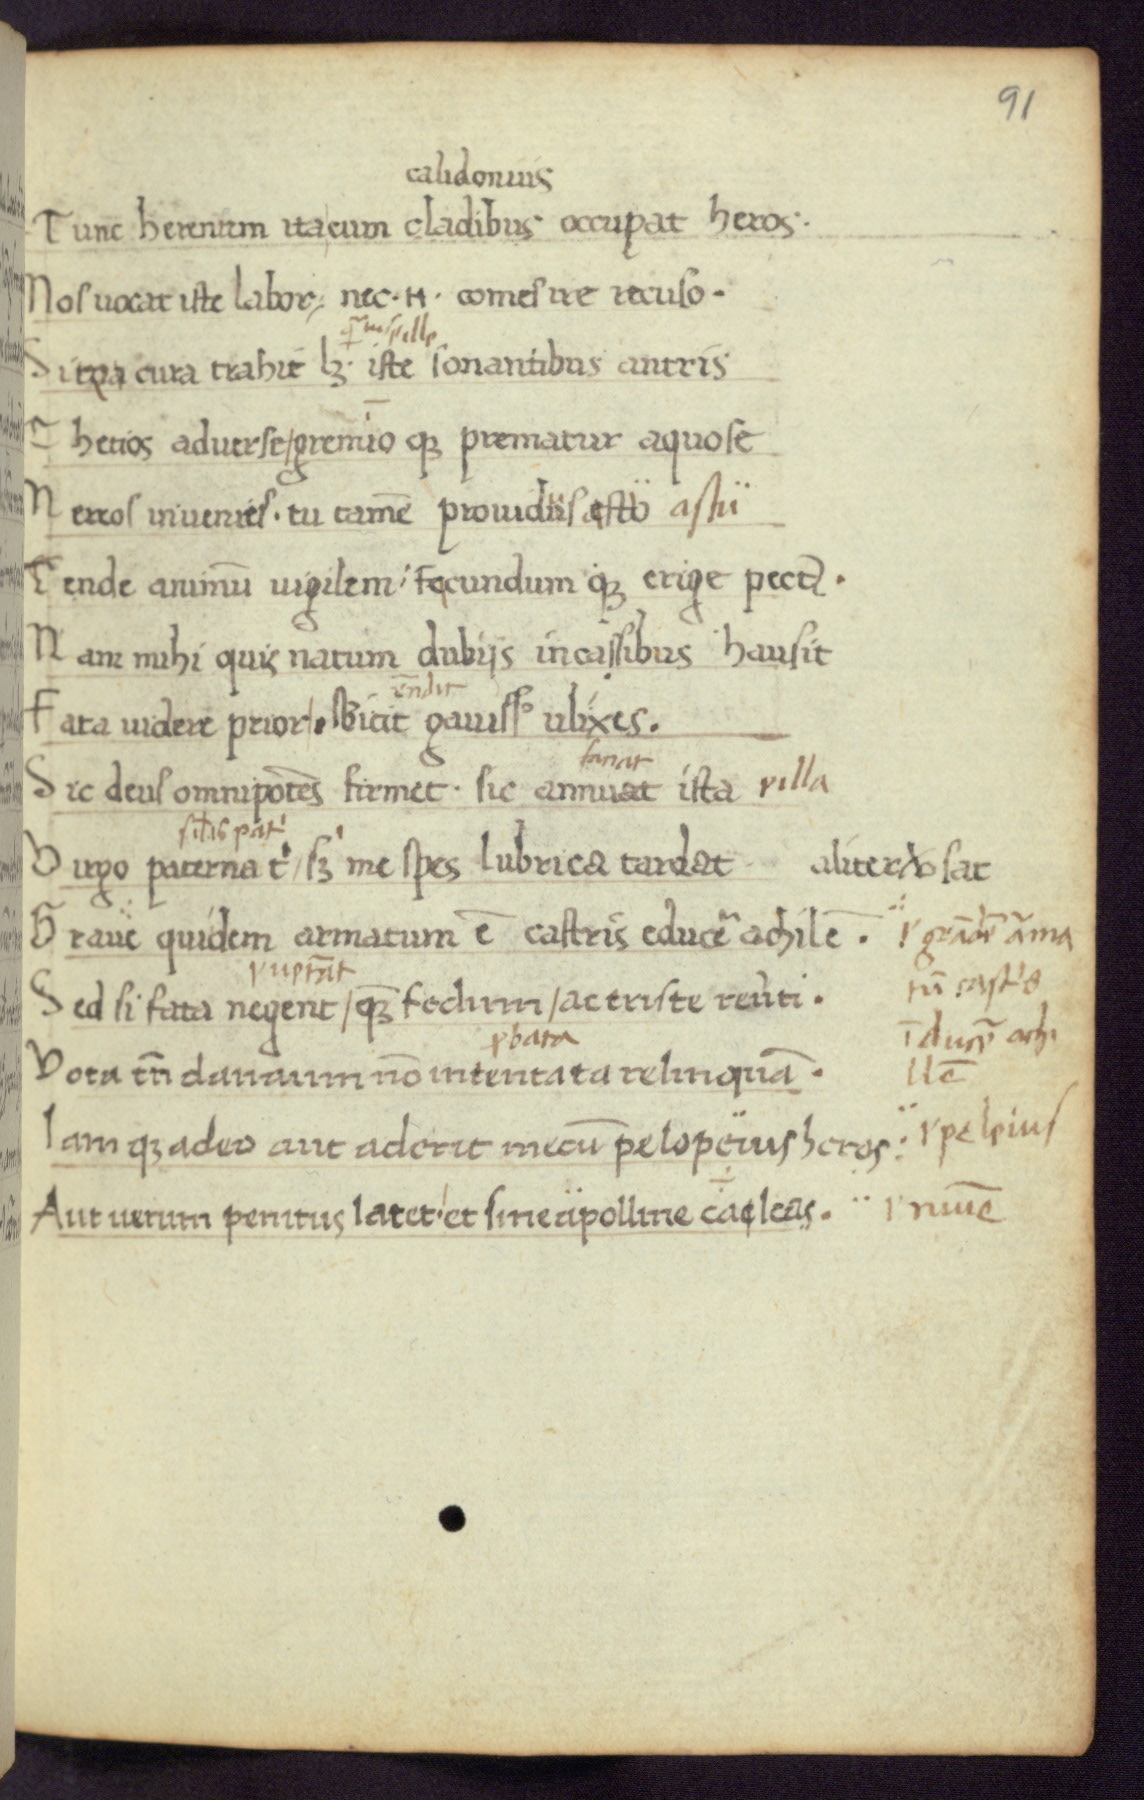 91
calidonius
Tunc herentem itacum cladibus occupat heros.
Nos uocat iste labor, nec. H. comes ire recuso.
Si tua cura trahit lꝫ. iste sonantibus antris
Thetios aduerse/gremio qꝫ prematur aquose
Nereos inuenies. tu tamē prouidus esto astu
Tende animū uigilem. fecundum qꝫ erige pect᷒.
Nam mihi quis natum dubiis in cassibus hausit
Fata uidere prior. sb̄icit gauis᷒ ulixes.
Sic deus omnipotēs firmet. sic annuat ista illa
Uirgo paterna t' / sꝫ me spes lubrica tardat aliter
Graue quidem armatum ē castris educē achilē.
Sed si fata negent / qꝫ fedum / ac triste reuti.
ꝓbata
Vota tn̄ danaum nō intentata relinquā.
Iam qꝫ adeo aut aderit mecū pelopeius heros. pelpius
Aut uerum penitus latet. et sine apolline caelcas. nūīē